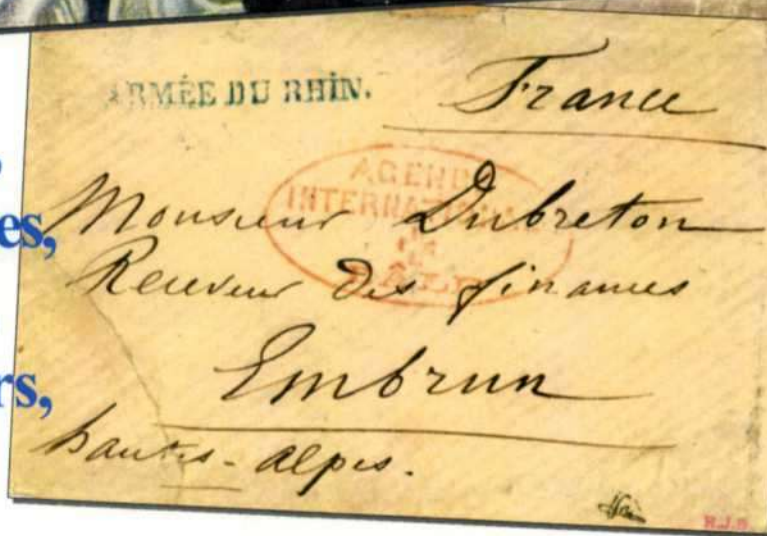 ARMÉE DU RHIN.
France
AGENCE
INTERNATIONALE
BÂLE
Monsieur Dubreton
es,
Receveur des finances
Embrun
rs,
hautes-alpes.
R.J.B.